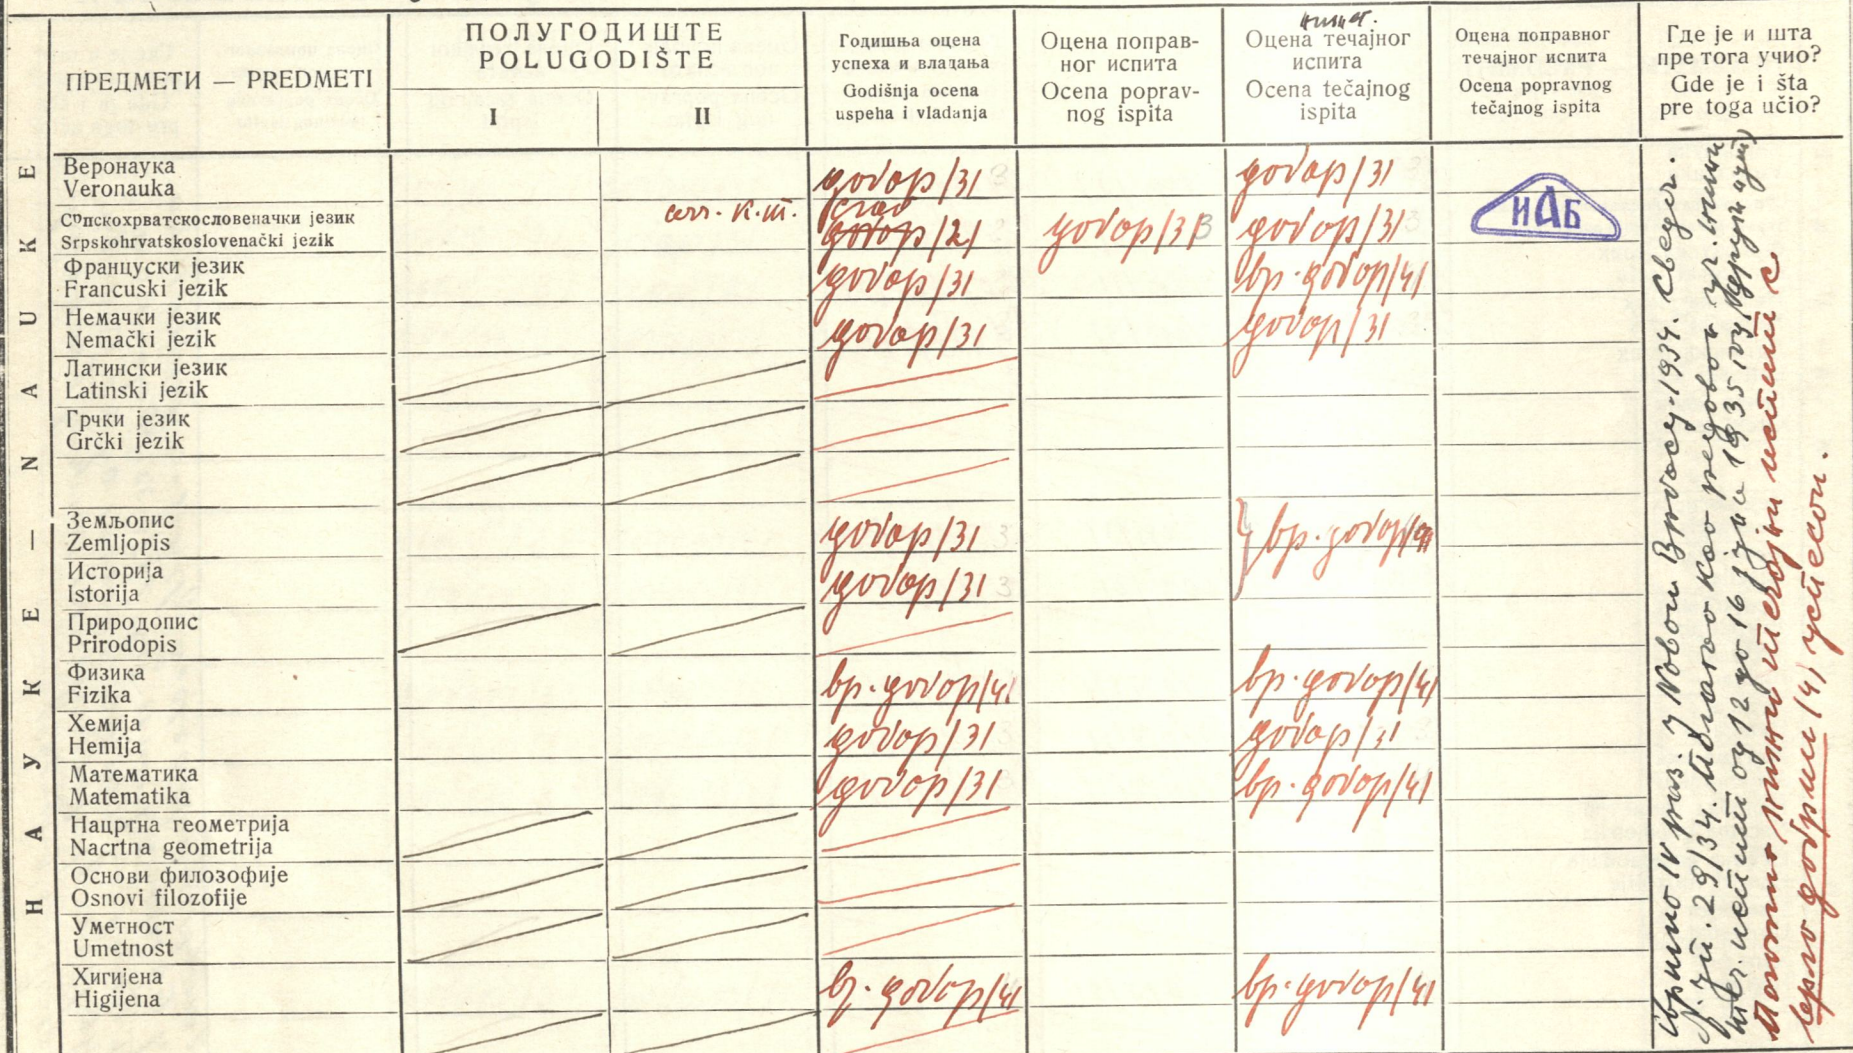 ПРЕДМЕТИ — PREDMETI
ПОЛУГОДИШТЕ
POLUGODIŠTE
I
II
Годишња оцена
успеха и владања
Godišnja ocena
uspeha i vladanja
Оцена поправ-
ног испита
Ocena poprav-
nog ispita
Оцена течајног
испита
Ocena tečajnog
ispita
Оцена поправног
течајног испита
Ocena popravnog
tečajnog ispita
Где је и шта
пре тога учио?
Gde je i šta
pre toga učio?
НАУКЕ — NAUKE
Веронаука
Veronauka
добар /3/
добар /3/
Српскохрватскословеначки језик
Srpskohrvatskoslovenački jezik
слаб
/2/
добар /3/
добар /3/
ИАБ
Француски језик
Francuski jezik
добар /3/
вр. добар /4/
Немачки језик
Nemački jezik
добар /3/
добар /3/
Латински језик
Latinski jezik
Грчки језик
Grčki jezik
Земљопис
Zemljopis
добар /3/
вр. добар /4/
Историја
Istorija
добар /3/
Природопис
Prirodopis
Физика
Fizika
вр. добар /4/
вр. добар /4/
Хемија
Hemija
добар /3/
добар /3/
Математика
Matematika
добар /3/
вр. добар /4/
Нацртна геометрија
Nacrtna geometrija
Основи филозофије
Osnovi filozofije
Уметност
Umetnost
Хигијена
Higijena
вр. добар /4/
вр. добар /4/
Свршио IV раз. у Новом Врбасу 1934. Сведоч.
29/34. Полагао као редован уч. нижи
теч. испит од 12 до 16 јуна 1935 год
Положио нижи течајни испит с
врло добрим /4/ успехом.